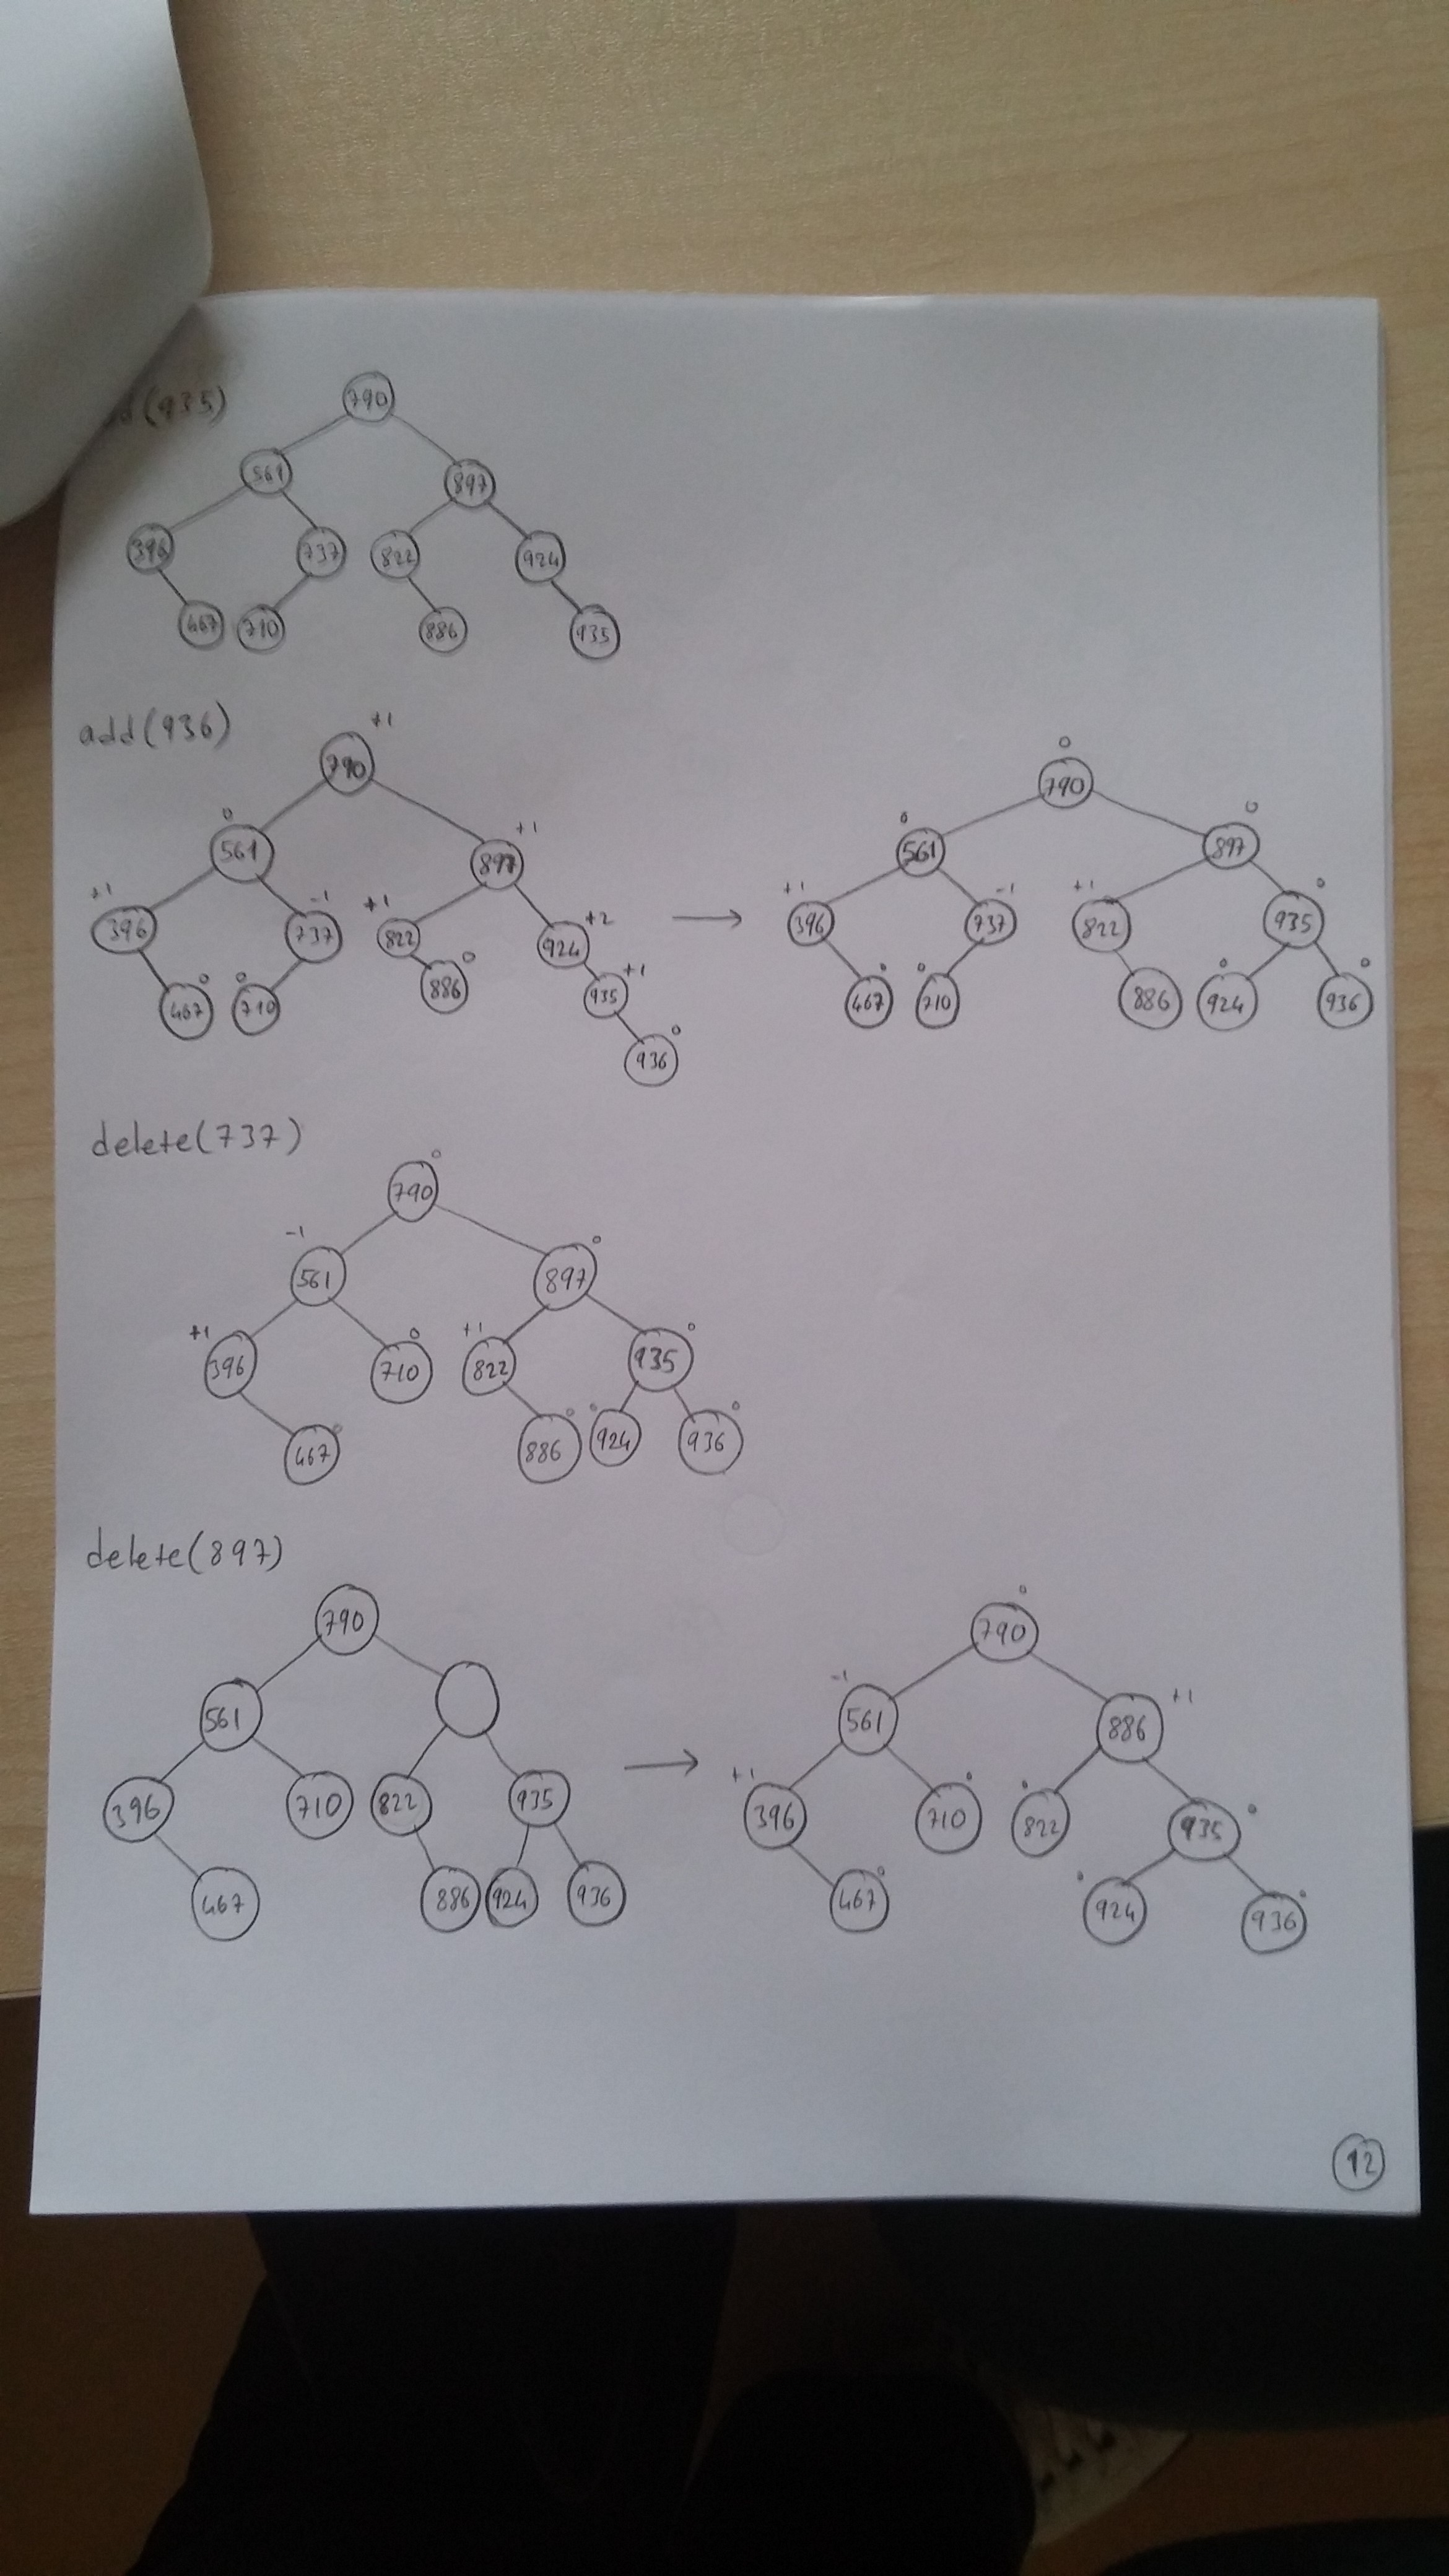 (935)
790
561 897
396 737 822 924
467 710 886 935
add(936)
+1
790
0 +1
561 897
+1 -1 +1 +2
396 737 822 924
0 0 0 +1
467 710 886 935
0
936
→
0
790
0 0
561 897
+1 -1 +1 0
396 737 822 935
0 0 0 0
467 710 886 924 936
delete(737)
0
790
-1 0
561 897
+1 0 +1 0
396 710 822 935
0 0 0 0
467 886 924 936
delete(897)
790
561
396 710 822 935
467 886 924 936
→
0
790
-1 +1
561 886
+1 0 0 0
396 710 822 935
0 0 0
467 924 936
12